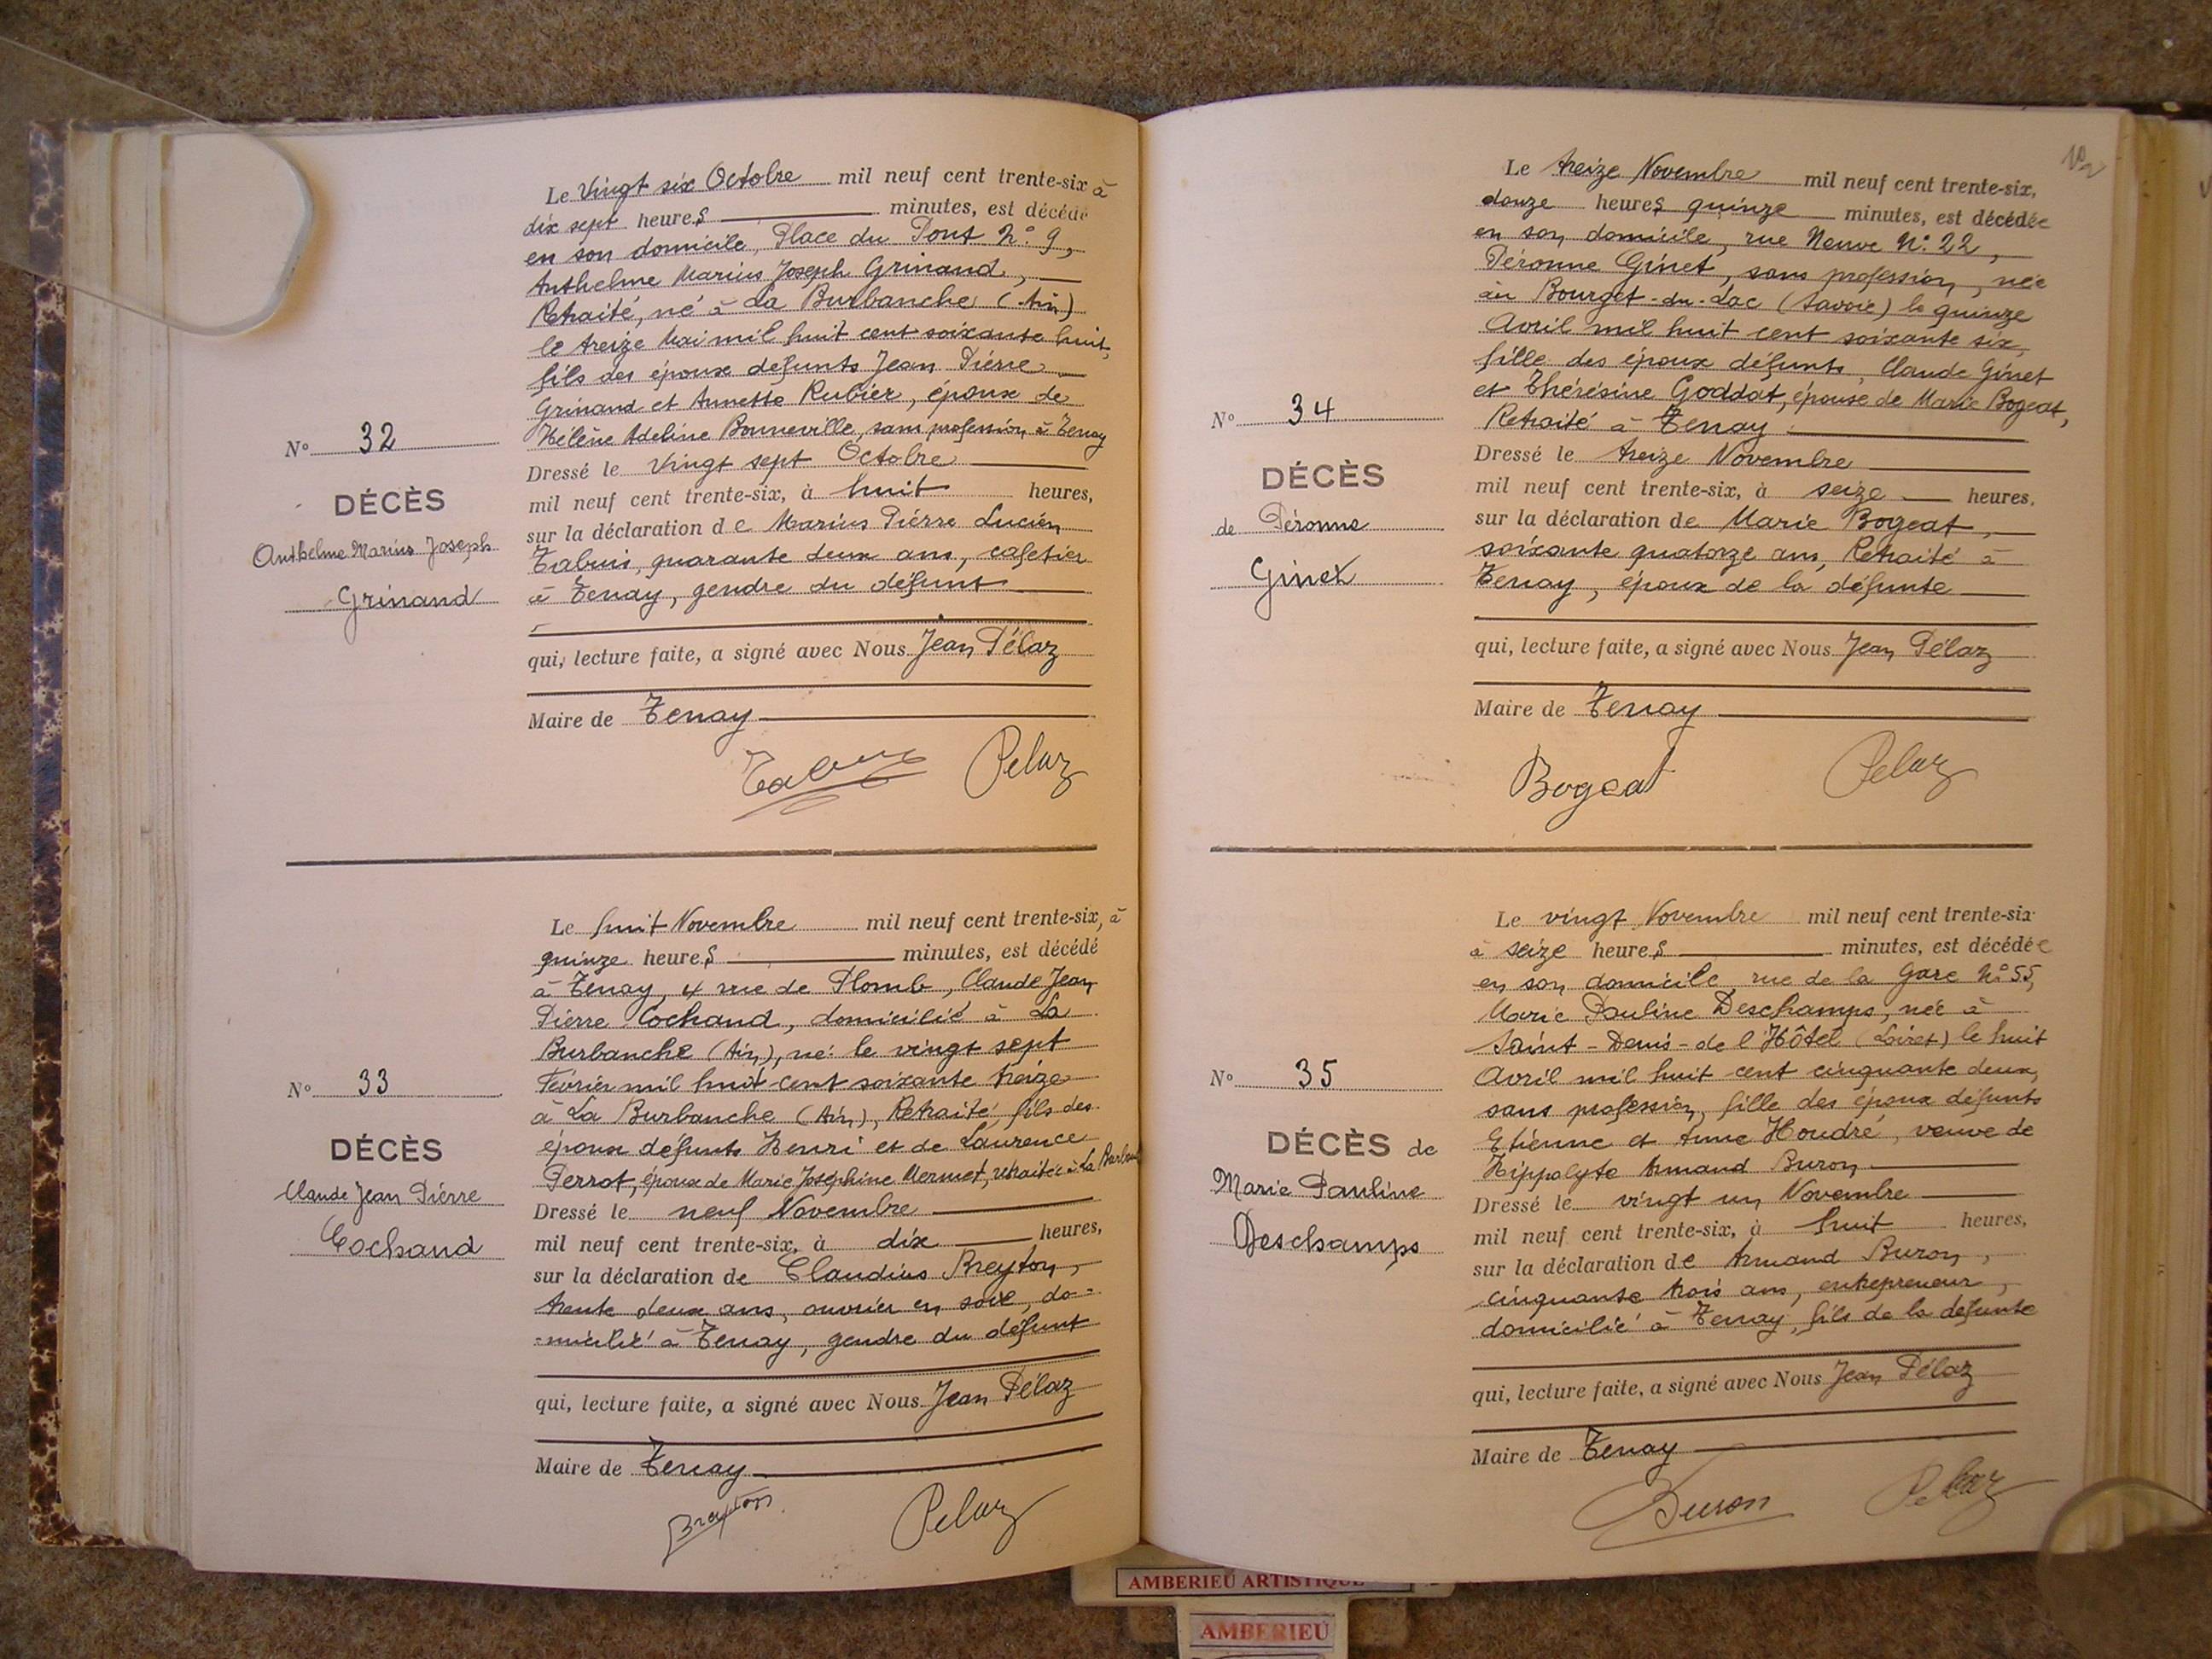 Le Vingt six Octobre mil neuf cent trente-six à
dix sept heures minutes, est décédé
en son domicile, Place du Pont N° 9,
Anthelme Marius Joseph Grinand,
Retraité, né à La Burbanche (Ain)
le treize Mai mil huit cent soixante huit,
fils des époux défunts Jean Pierre
Grinand et Annette Rubier, époux de
Hélène Adeline Bonneville, sans profession à Tenay
N° 32
DÉCÈS
Anthelme Marius Joseph
Grinand
Dressé le Vingt sept Octobre
mil neuf cent trente-six, à huit heures,
sur la déclaration de Marius Pierre Lucien
Tabuis, quarante deux ans, cafetier
à Tenay, gendre du défunt
qui, lecture faite, a signé avec Nous Jean Pélaz
Maire de Tenay
Pelaz
Le huit Novembre mil neuf cent trente-six, à
quinze heures minutes, est décédé
à Tenay, 4 rue de Plomb, Claude Jean
Pierre Cochand, domicilié à La
Burbanche (Ain), né le vingt sept
Février mil huit cent soixante treize
à La Burbanche (Ain), Retraité, fils des
époux défunts Henri et de Laurence
Perrot, époux de Marie Joséphine Mermet, retraitée à La
N° 33
DÉCÈS
Claude Jean Pierre
Cochand
Dressé le neuf Novembre
mil neuf cent trente-six, à dix heures,
sur la déclaration de Claudius Breyton,
trente deux ans, ouvrier en soie, do-
-micilié à Tenay, gendre du défunt
qui, lecture faite, a signé avec Nous Jean Pélaz
Maire de Tenay
Breyton Pelaz
Le treize Novembre mil neuf cent trente-six,
douze heures quinze minutes, est décédée
en son domicile, rue Neuve N° 22,
Péronne Ginet, sans profession, née
au Bourget-du-Lac (Savoie) le quinze
Avril mil huit cent soixante six,
fille des époux défunts, Claude Ginet
et Thérésine Goddat, épouse de Marie Bogeat,
Retraité à Tenay
N° 34
DÉCÈS
de Péronne
Ginet
Dressé le treize Novembre
mil neuf cent trente-six, à seize heures,
sur la déclaration de Marie Bogeat,
soixante quatorze ans, Retraité à
Tenay, époux de la défunte
qui, lecture faite, a signé avec Nous Jean Pélaz
Maire de Tenay
Bogeat Pelaz
Le vingt Novembre mil neuf cent trente-six
à seize heures minutes, est décédée
en son domicile rue de la Gare N° 55,
Marie Pauline Deschamps, née à
Saint-Denis-de l'Hôtel (Loiret) le huit
Avril mil huit cent cinquante deux,
sans profession, fille des époux défunts
Etienne et Anne Houdré, veuve de
Hippolyte Armand Buron
N° 35
DÉCÈS de
Marie Pauline
Deschamps
Dressé le vingt un Novembre
mil neuf cent trente-six, à huit heures,
sur la déclaration de Armand Buron,
cinquante trois ans, entrepreneur,
domicilié à Tenay, fils de la défunte
qui, lecture faite, a signé avec Nous Jean Pélaz
Maire de Tenay
Buron Pelaz
AMBERIEU ARTISTIQUE
AMBERIEU